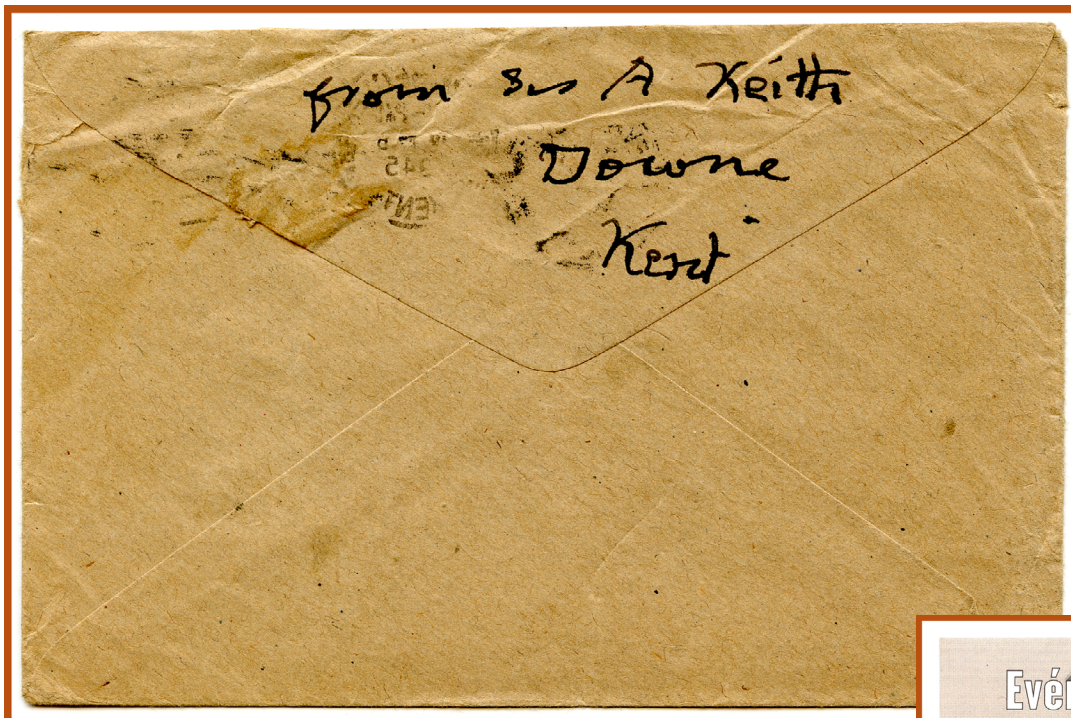 from Sir A Keith
Downe
Kent
Evér